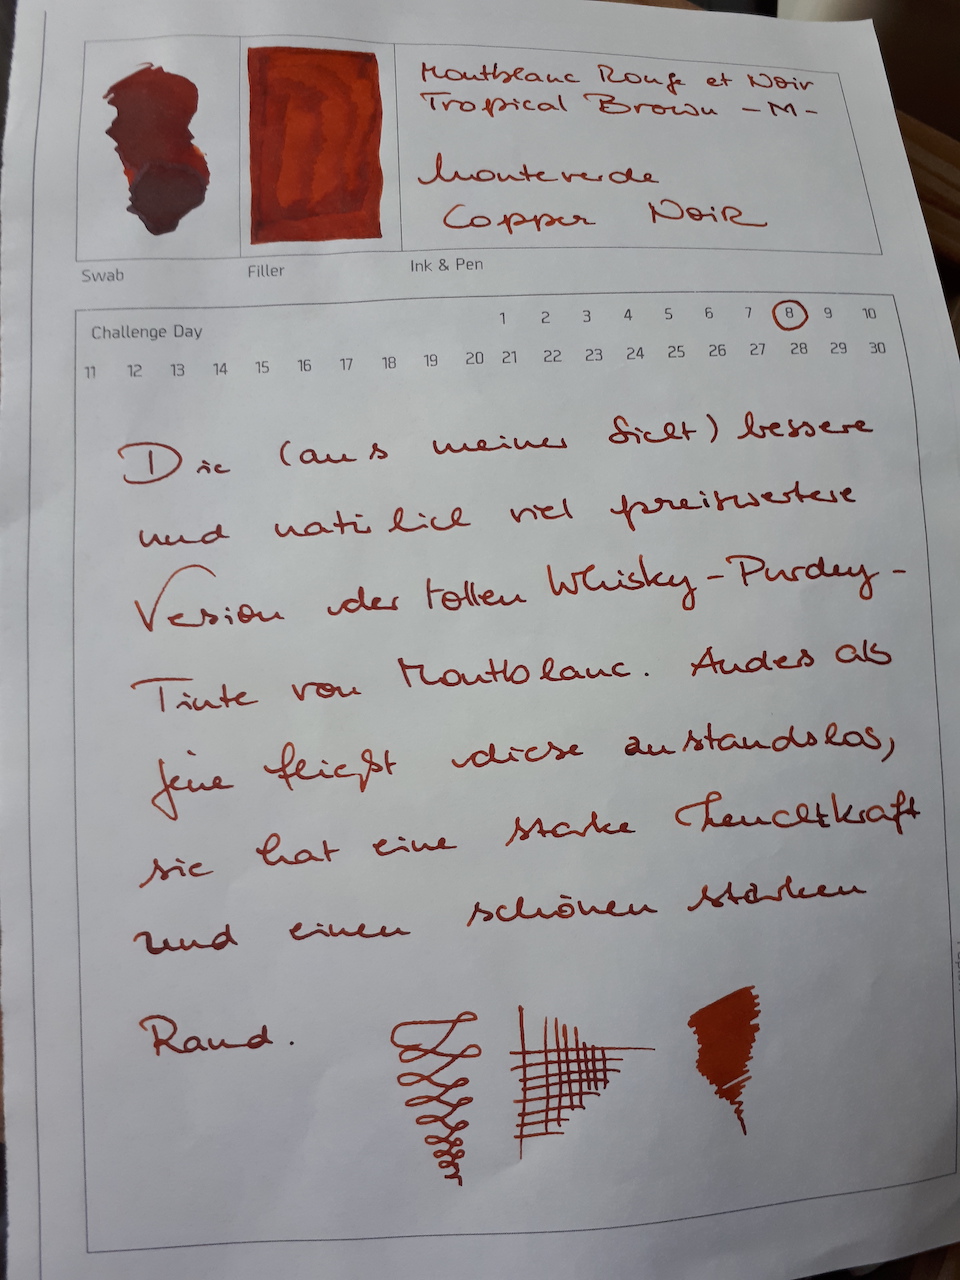 Montblanc Rouge et Noir
Tropical Brown - M -
Monteverde
Copper Noir
Swab
Filler
Ink & Pen
Challenge Day
1 2 3 4 5 6 7 8 9 10
11 12 13 14 15 16 17 18 19 20 21 22 23 24 25 26 27 28 29 30
Die (aus meiner Sicht) bessere
und natürlich viel preiswertere
Version der tollen Whisky-Purdey-
Tinte von Montblanc. Anders als
jene fließt diese anstandslos,
sie hat eine starke Leuchtkraft
und einen schönen starken
Rand.